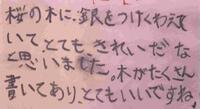 桜の木に、銀をつけくわえて
いて、とても きれいだな
と思いました。木がたくさん
書いてあり、とてもいいですね。